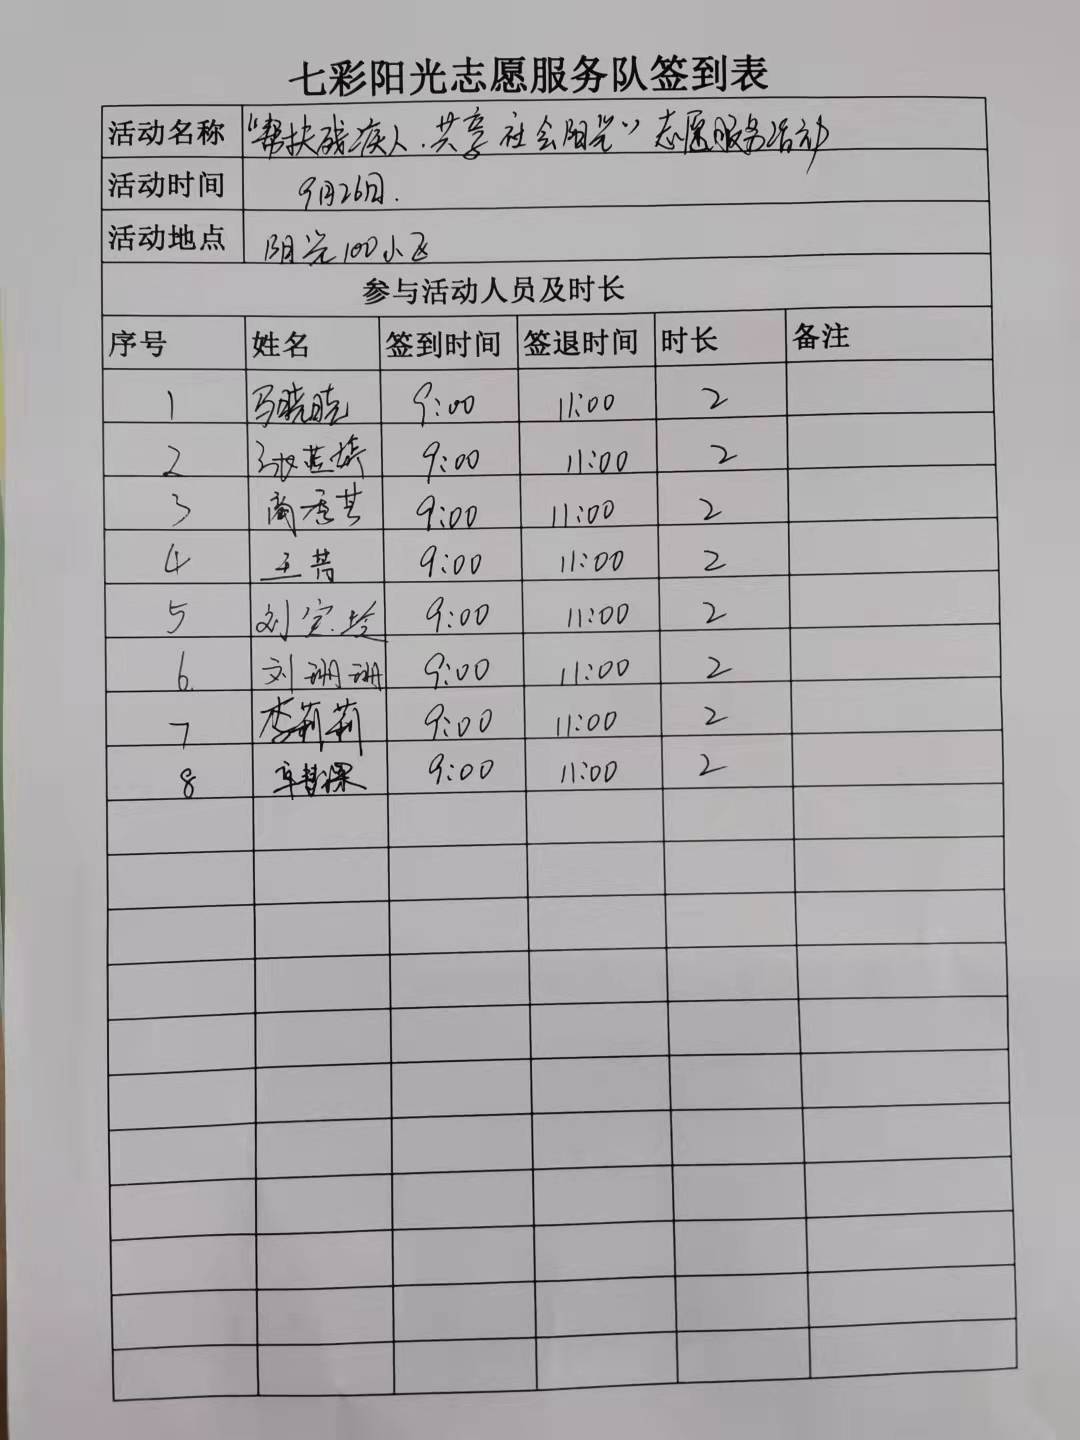 七彩阳光志愿服务队签到表
活动名称 “帮扶残疾人.共享社会阳光”志愿服务活动
活动时间 9月26日.
活动地点 阳光100小区
参与活动人员及时长
序号 姓名 签到时间 签退时间 时长 备注
1 马晓晓 9:00 11:00 2
2 9:00 11:00 2
3 9:00 11:00 2
4 王 9:00 11:00 2
5 刘宝玲 9:00 11:00 2
6. 刘珊珊 9:00 11:00 2
7 李莉莉 9:00 11:00 2
8 9:00 11:00 2